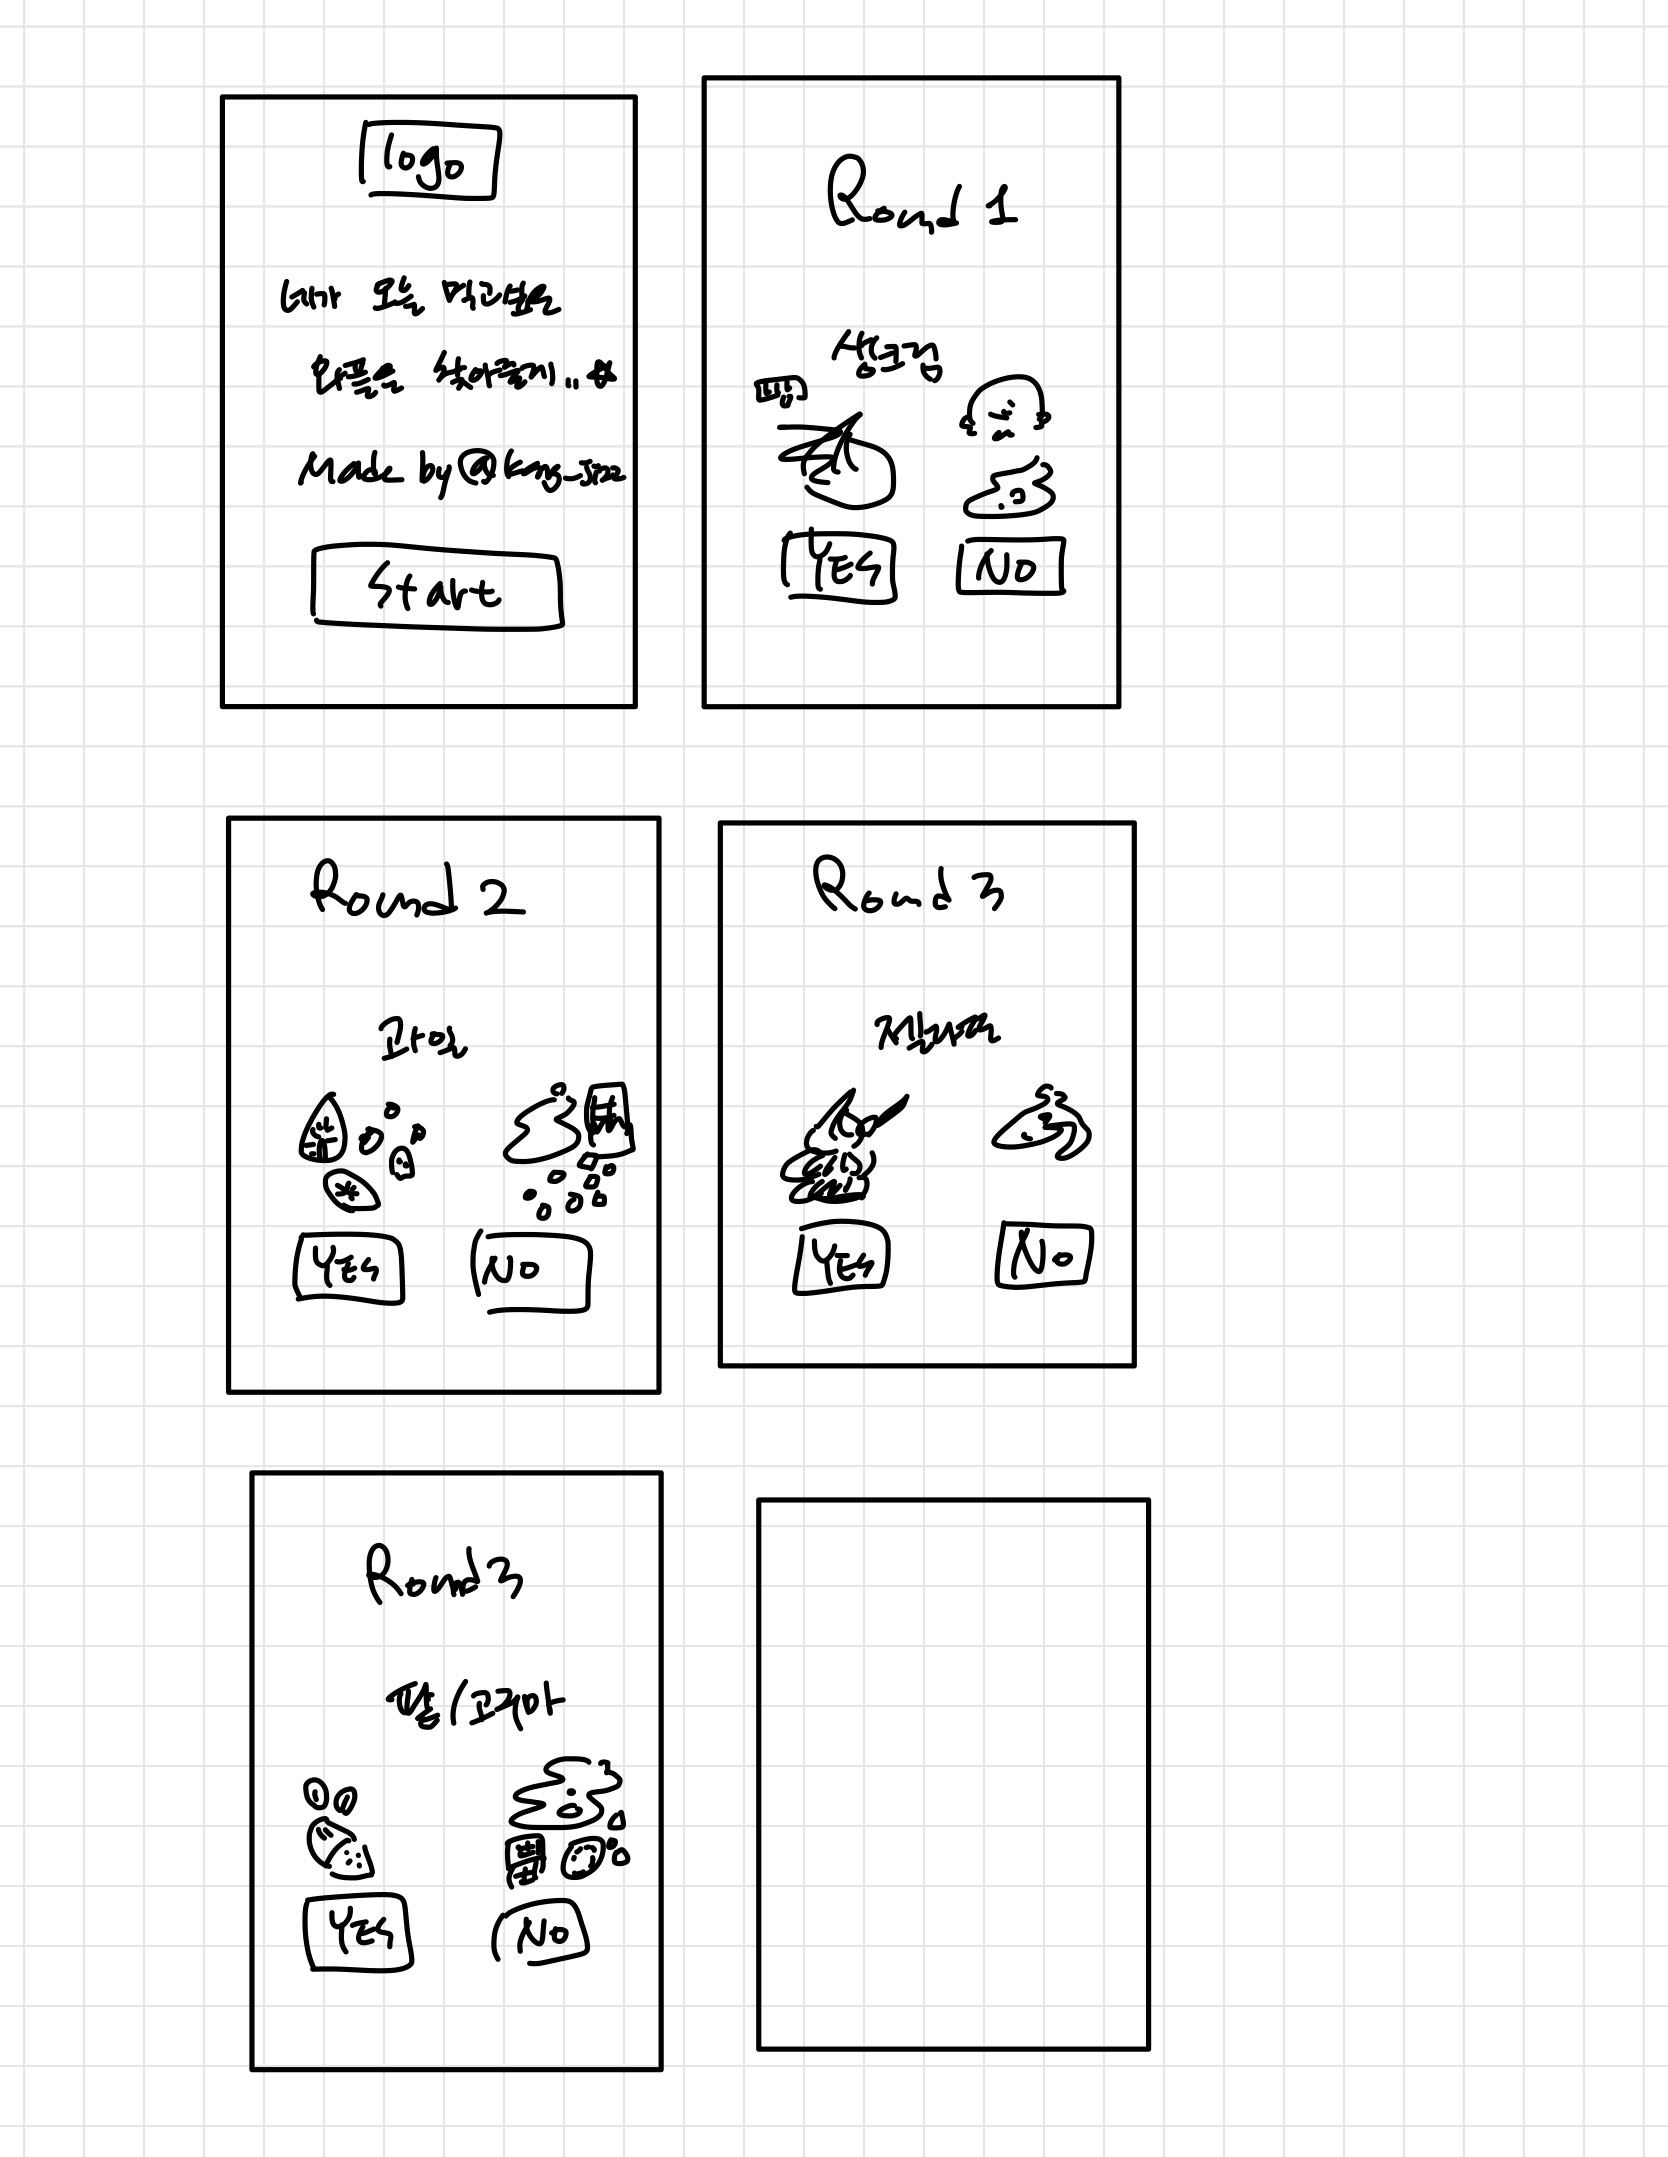 logo
네가 오늘 먹고싶을
와플을 찾아줄게..☆
Made by @kang_
Start
Round 1
생크림
YES
NO
Round 2
과일
YES
NO
Round 3
YES
NO
Round 3
팥/고구마
YES
NO